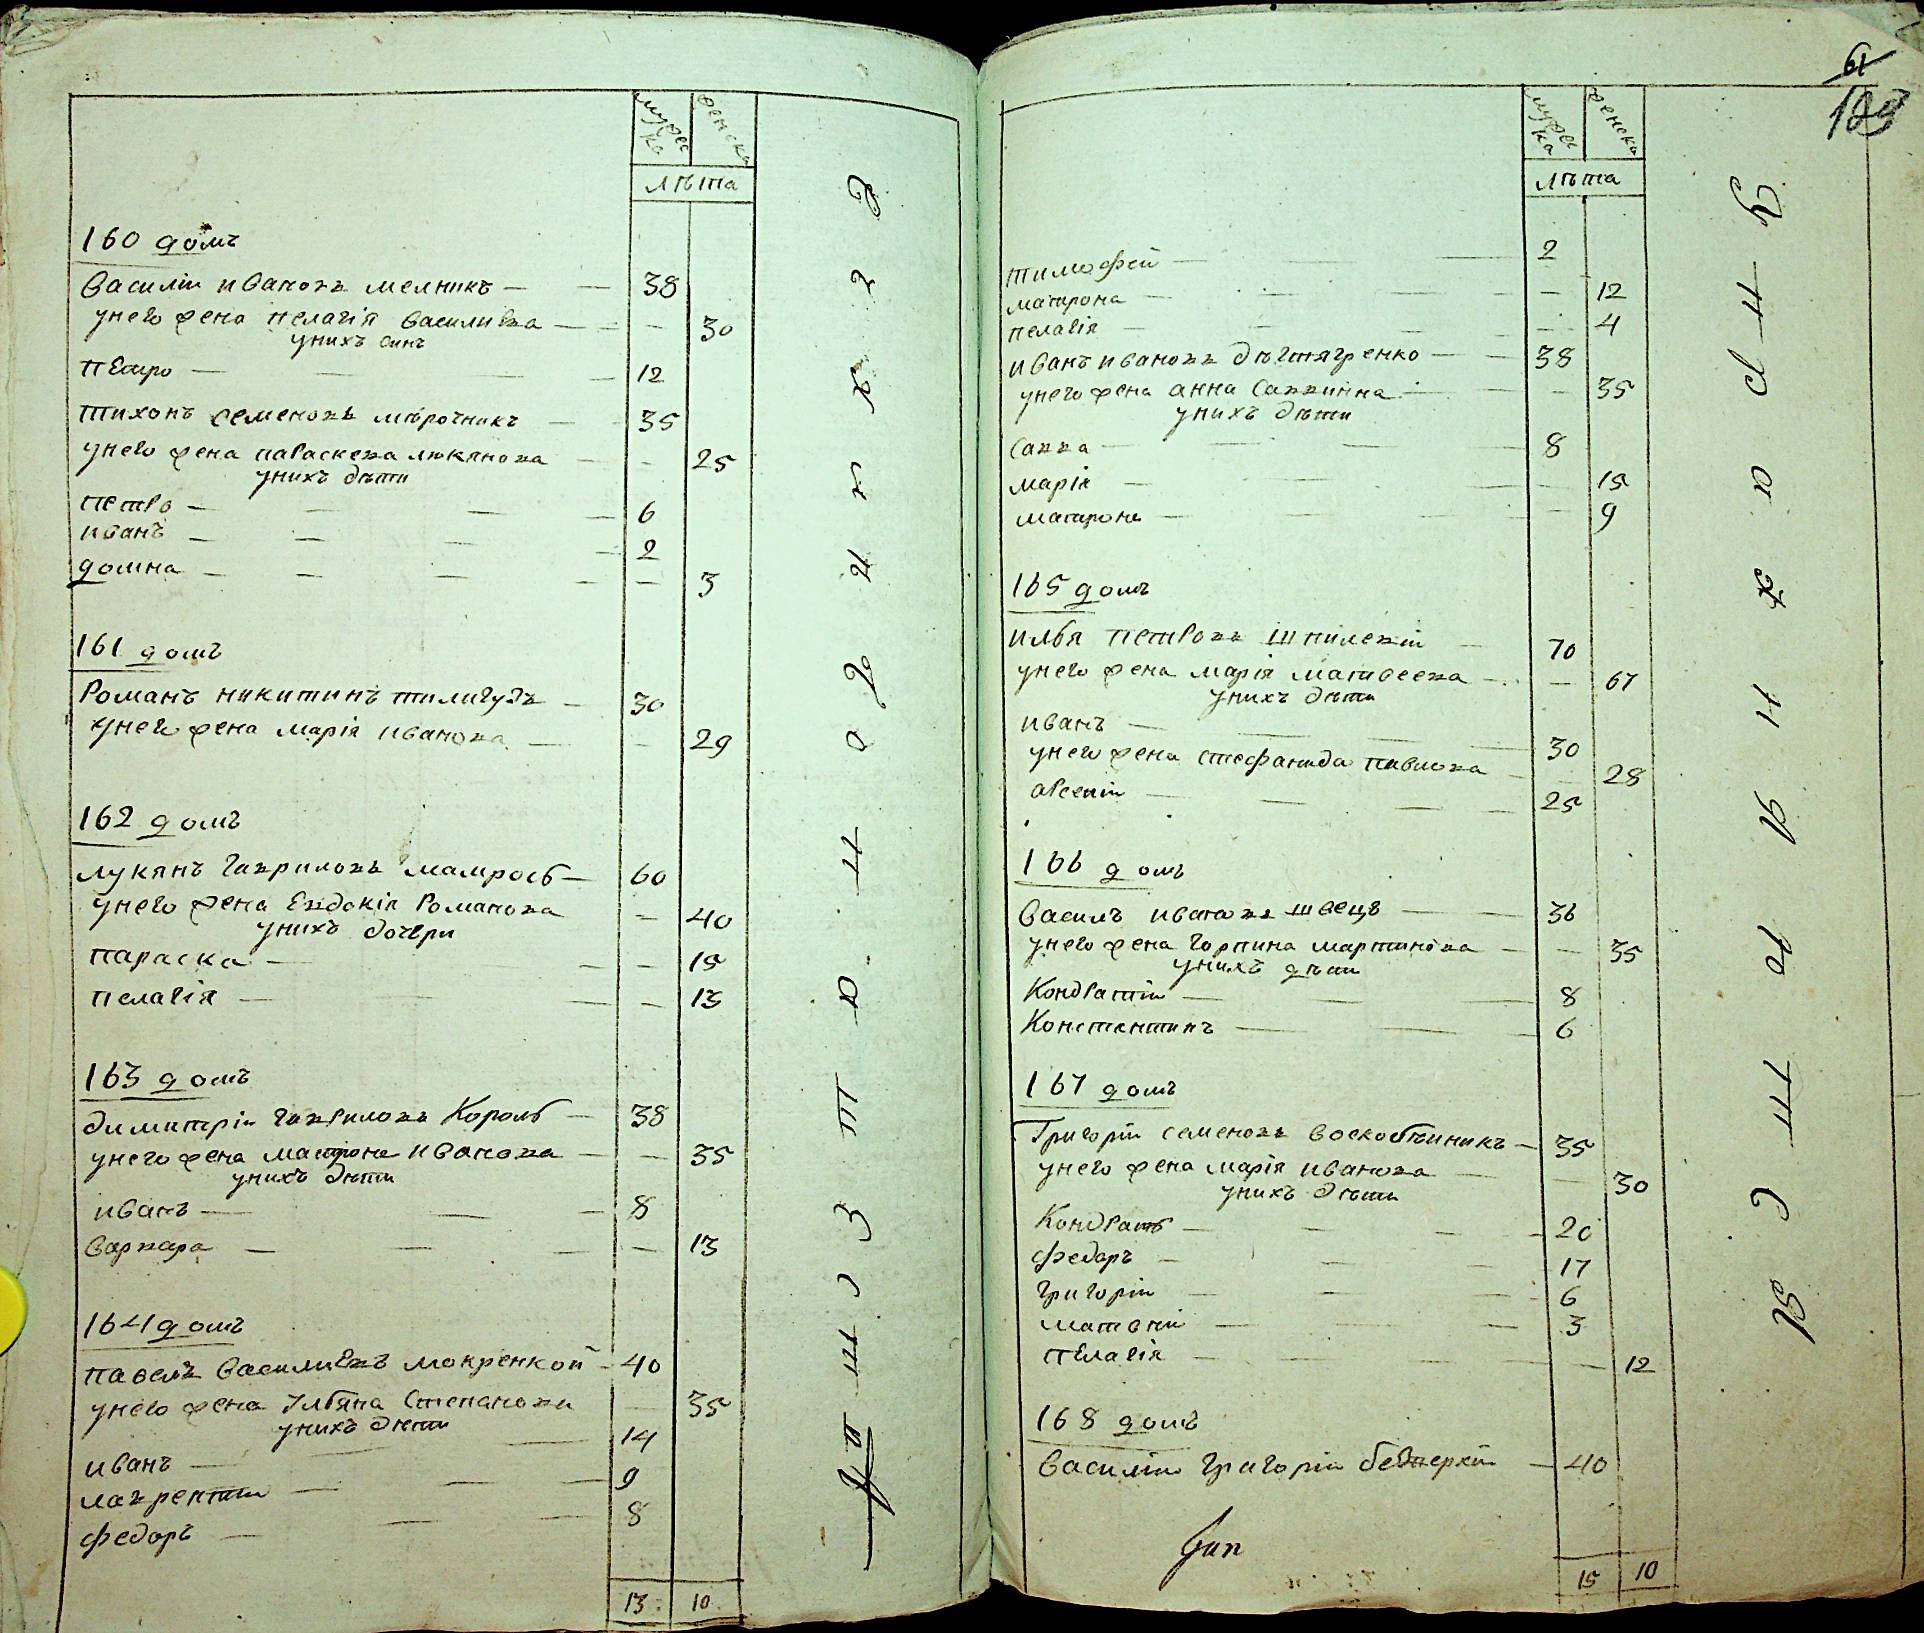 мужеска
женска
лѣта
160 домъ
Василіи Ивановъ мелникъ 38
унего жена пелагія василиева 30
унихъ синъ
пЕтро 12
тихонъ семеновъ мѣрочникъ 35
унего жена параскева люкянова 25
унихъ дѣти
петро 6
иванъ 2
домна 3
161 домъ
Романъ никитинъ тилигулъ 30
унего жена марія иванова 29
162 домъ
лукянъ гавриловъ матрось 60
унего жена Евдокія Романова 40
унихъ дочери
параска 15
пелагія 13
163 домъ
димитріи гавриловъ Король 38
унего жена матрона иванова 35
унихъ дѣти
иванъ 8
варвара 13
164 домъ
павелъ василиевъ мокренкой 40
унего жена Улбяна Степанова 35
унихъ дѣти
иванъ 14
лаврентии 9
федоръ 8
13 10
61
мужеска
женска
лѣта
тимофей 2
матрона 12
пелагія 4
иванъ ивановъ дѣгтяренко 38
унего жена анна Саввинна 35
унихъ дѣти
савва 8
марія 15
матрона 9
165 домъ
илья петровъ шпилевій 70
унего жена марія матвеева 67
унихъ дѣти
иванъ 30
унего жена стефанида павлова 28
арсеніи 25
166 домъ
василъ ивановъ швецъ 36
унего жена горпина мартинова 35
унихъ дѣти
Кондратіи 8
Константинъ 6
167 домъ
Григоріи семеновъ воскобѣиникъ 35
унего жена марія иванова 30
унихъ дѣти
Кондратъ 20
федоръ 17
григоріи 6
матвѣй 3
пЕлагія 12
168 домъ
василіи григоріи 40
15 10